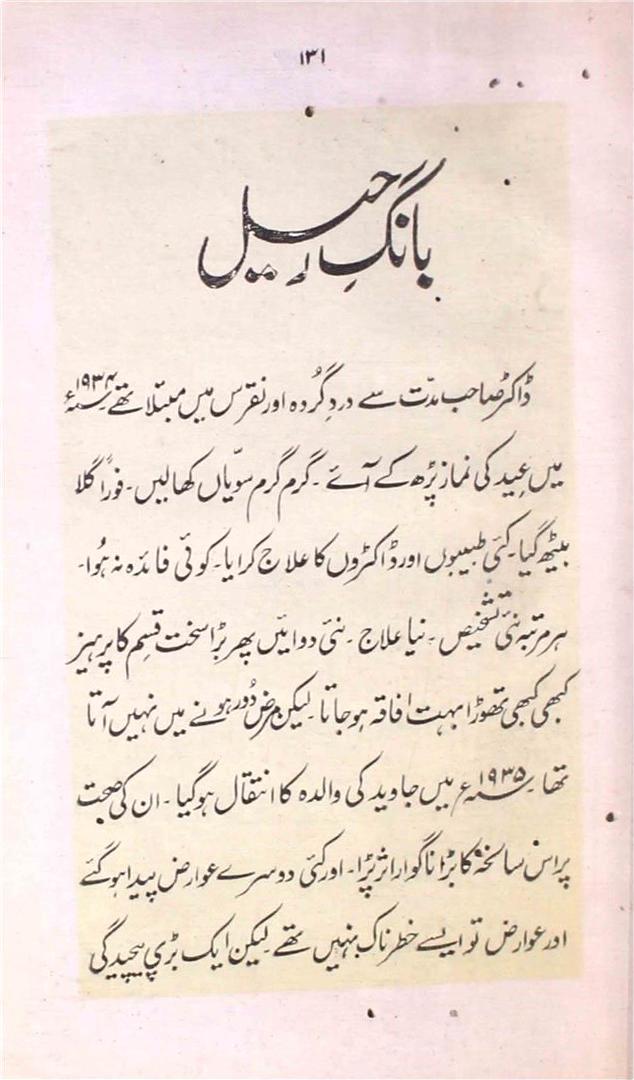 ۱۳۱
بانگِ رحیل
ڈاکٹر صاحب مدّت سے دردِ گُردہ اور نقرس میں مبتلا تھے ۱۹۳۴ء
میں عید کی نماز پڑھ کے آئے ۔ گرم گرم سویّاں کھالیں ۔ فوراً گلا
بیٹھ گیا ۔ کئی طبیبوں اور ڈاکٹروں کا علاج کرایا ۔ کوئی فائدہ نہ ہُوا ۔
ہر مرتبہ نئی تشخیص ۔ نیا علاج ۔ نئی دوائیں پھر بڑا سخت قسم کا پرہیز
کبھی کبھی تھوڑا بہت افاقہ ہو جاتا لیکن مرض دُور ہونے میں نہیں آتا
تھا ۔ ۱۹۳۵ء میں جاوید کی والدہ کا انتقال ہو گیا ۔ ان کی صحت
پر اس سانحہ کا بڑا ناگوار اثر پڑا ۔ اور کئی دوسرے عوارض پیدا ہو گئے
اور عوارض تو ایسے خطرناک نہیں تھے لیکن ایک بڑی پیچیدگی